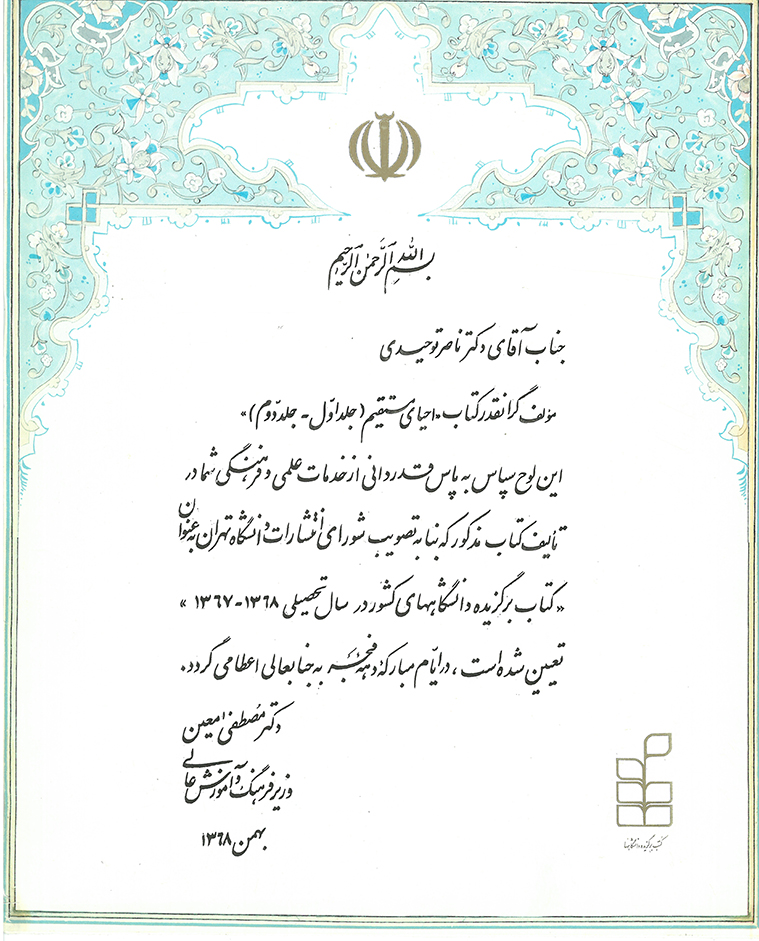 بسم الله الرحمن الرحیم
جناب آقای دکتر ناصر توحیدی
مؤلف گرانقدر کتاب «احیای مستقیم (جلد اوّل - جلد دوم)»
این لوح سپاس به پاس قدردانی از خدمات علمی و فرهنگی شما در
تألیف کتاب مذکور که بنا به تصویب شورای انتشارات دانشگاه تهران به عنوان
«کتاب برگزیده دانشگاههای کشور در سال تحصیلی ۱۳۶۸-۱۳۶۷»
تعیین شده است، در ایّام مبارکهٔ دههٔ فجر به جنابعالی اعطا می گردد.
دکتر مصطفی معین
وزیر فرهنگ و آموزش عالی
بهمن ۱۳۶۸
کتب برگزیده دانشگاهها